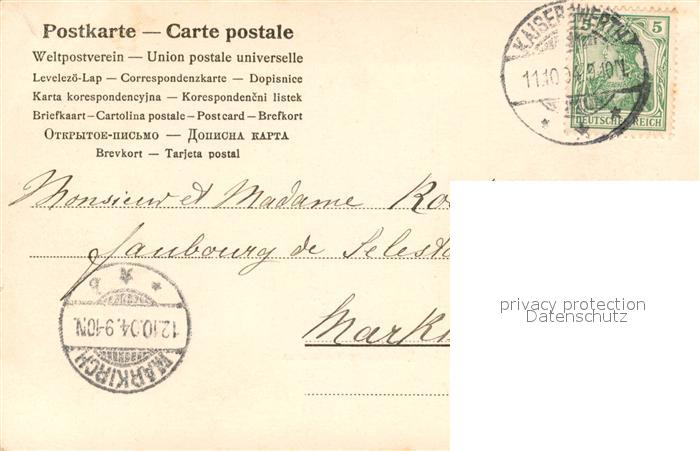 Postkarte — Carte postale
Weltpostverein — Union postale universelle
Levelező-Lap — Correspondenzkarte — Dopisnice
Karta korespondencyjna — Korespondenční listek
Briefkaart — Cartolina postale — Post card — Brefkort
Открытое-письмо — Дописна карта
Brevkort — Tarjeta postal
KAISERSWERTH
11.10.04
5
DEUTSCHES REICH
Monsieur et Madame
faubourg de Selest
Mark
12.10.04.9-10N.
MARKIRCH
privacy protection
Datenschutz